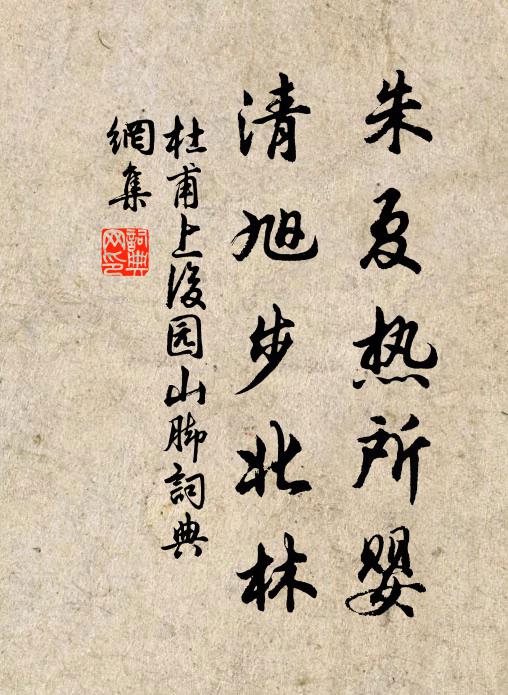 朱夏热所婴
清旭步北林
杜甫上後园山脚詞典
網集
詞典
网印